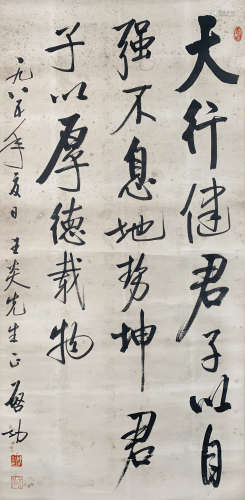 天行健君子以自
强不息地势坤君
子以厚德载物
一九八五年夏日 王炎先生正 启功